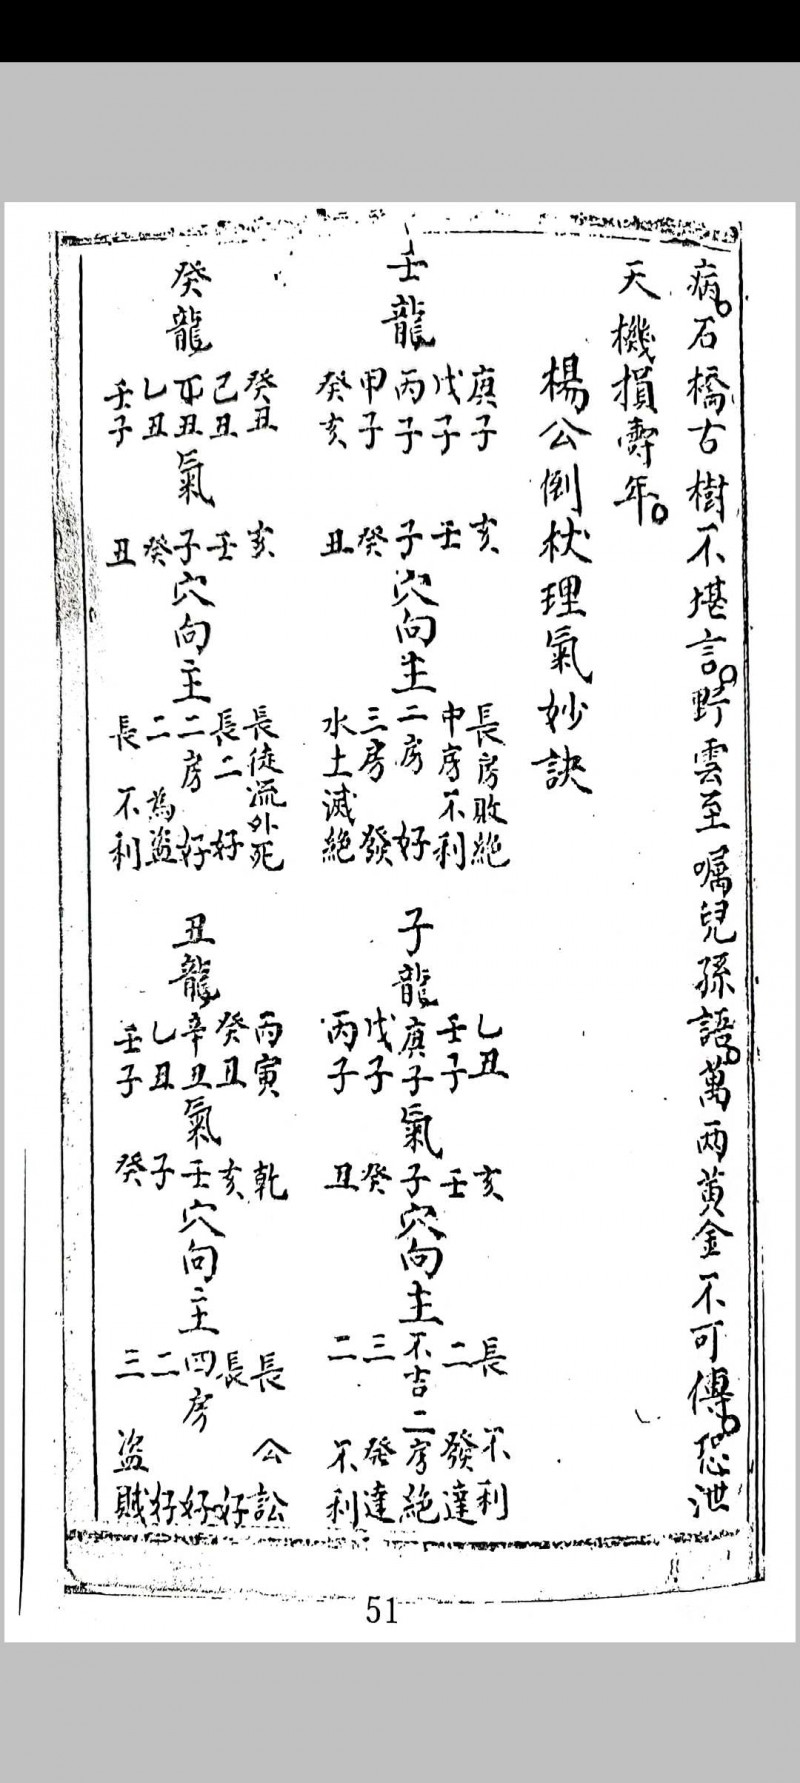 病石橋古樹不堪言野雲至囑兒孫語萬兩黃金不可傳恐泄
天機損壽年
楊公倒杖理氣妙訣
壬龍
庚子 戊子 丙子 甲子 癸亥
亥 壬 子 癸 丑
穴向主
長房敗絕
中房不利
二房好
三房發
水土滅絕
子龍
乙丑 壬子 庚子 戊子 丙子
氣
亥 壬 子 癸 丑
穴向主
長不利
二發達
不吉二房絕
三發達
二不利
癸龍
癸丑 己丑 丁丑 乙丑 壬子
氣
亥 壬 子 癸 丑
穴向主
長徒流外死
長二好
二房好
二為盜
長不利
丑龍
丙寅 癸丑 辛丑 乙丑 壬子
氣
乾 亥 壬 子 癸
穴向主
長公訟
長好
四房好
二好
三盜賊
51